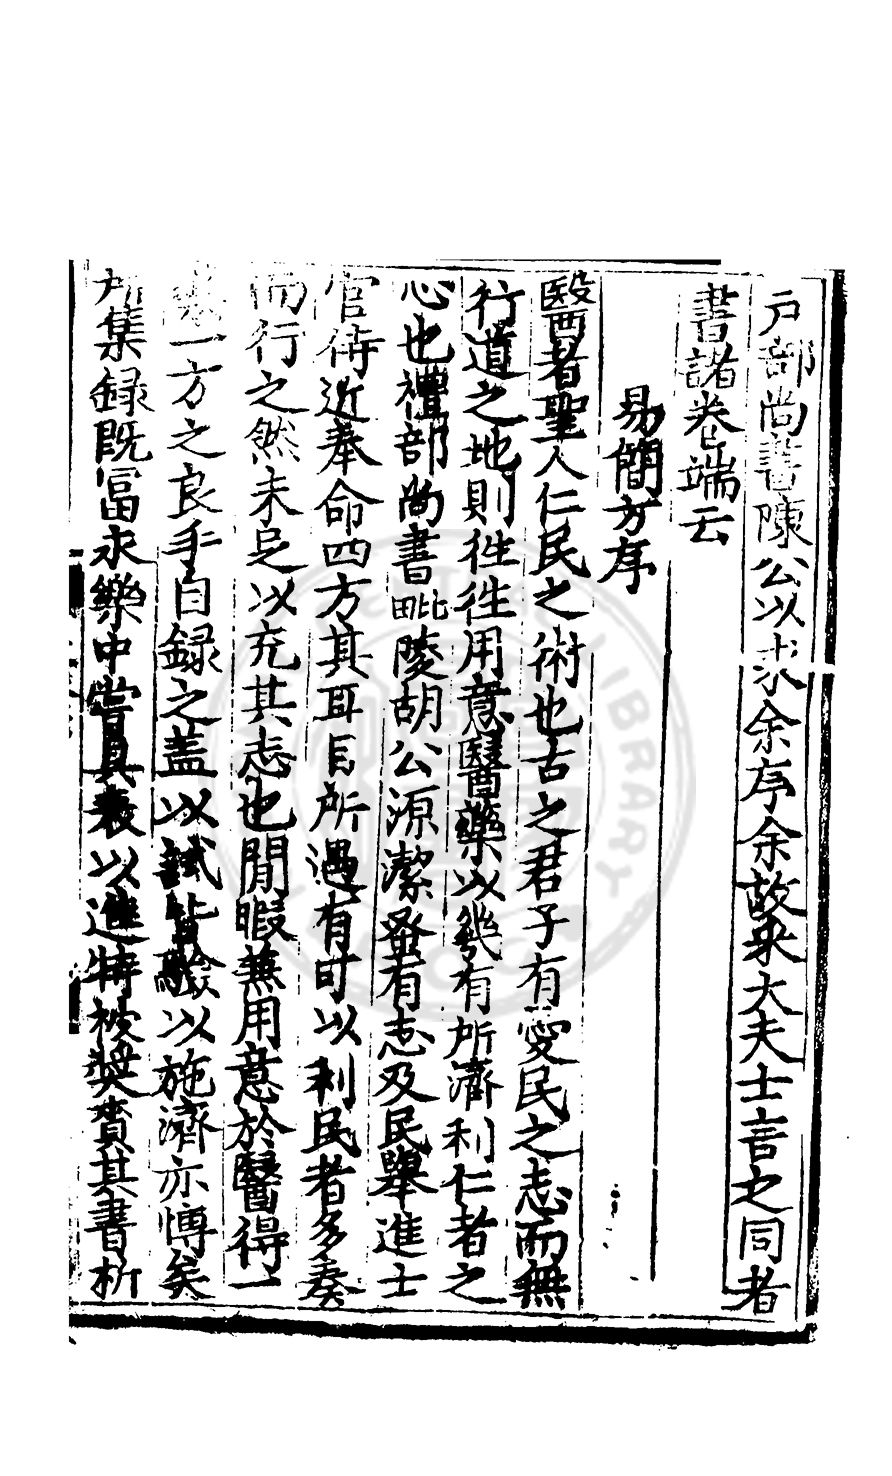 戶部尚書陳公以求余序余故采大夫士言之同者
書諸卷端云
易簡方序
醫者聖人仁民之術也古之君子有愛民之志而無
行道之地則徃徃用意醫藥以幾有所濟利仁者之
心也禮部尚書毗陵胡公源潔蚤有志及民舉進士
官侍近奉命四方其耳目所遇有可以利民者多奏
而行之然未足以充其志也閒暇兼用意於醫得一
藥一方之良手自録之盖以試皆驗以施濟亦慱矣
所集録既富永樂中嘗具表以進特被奨賚其書析
LIBRARY